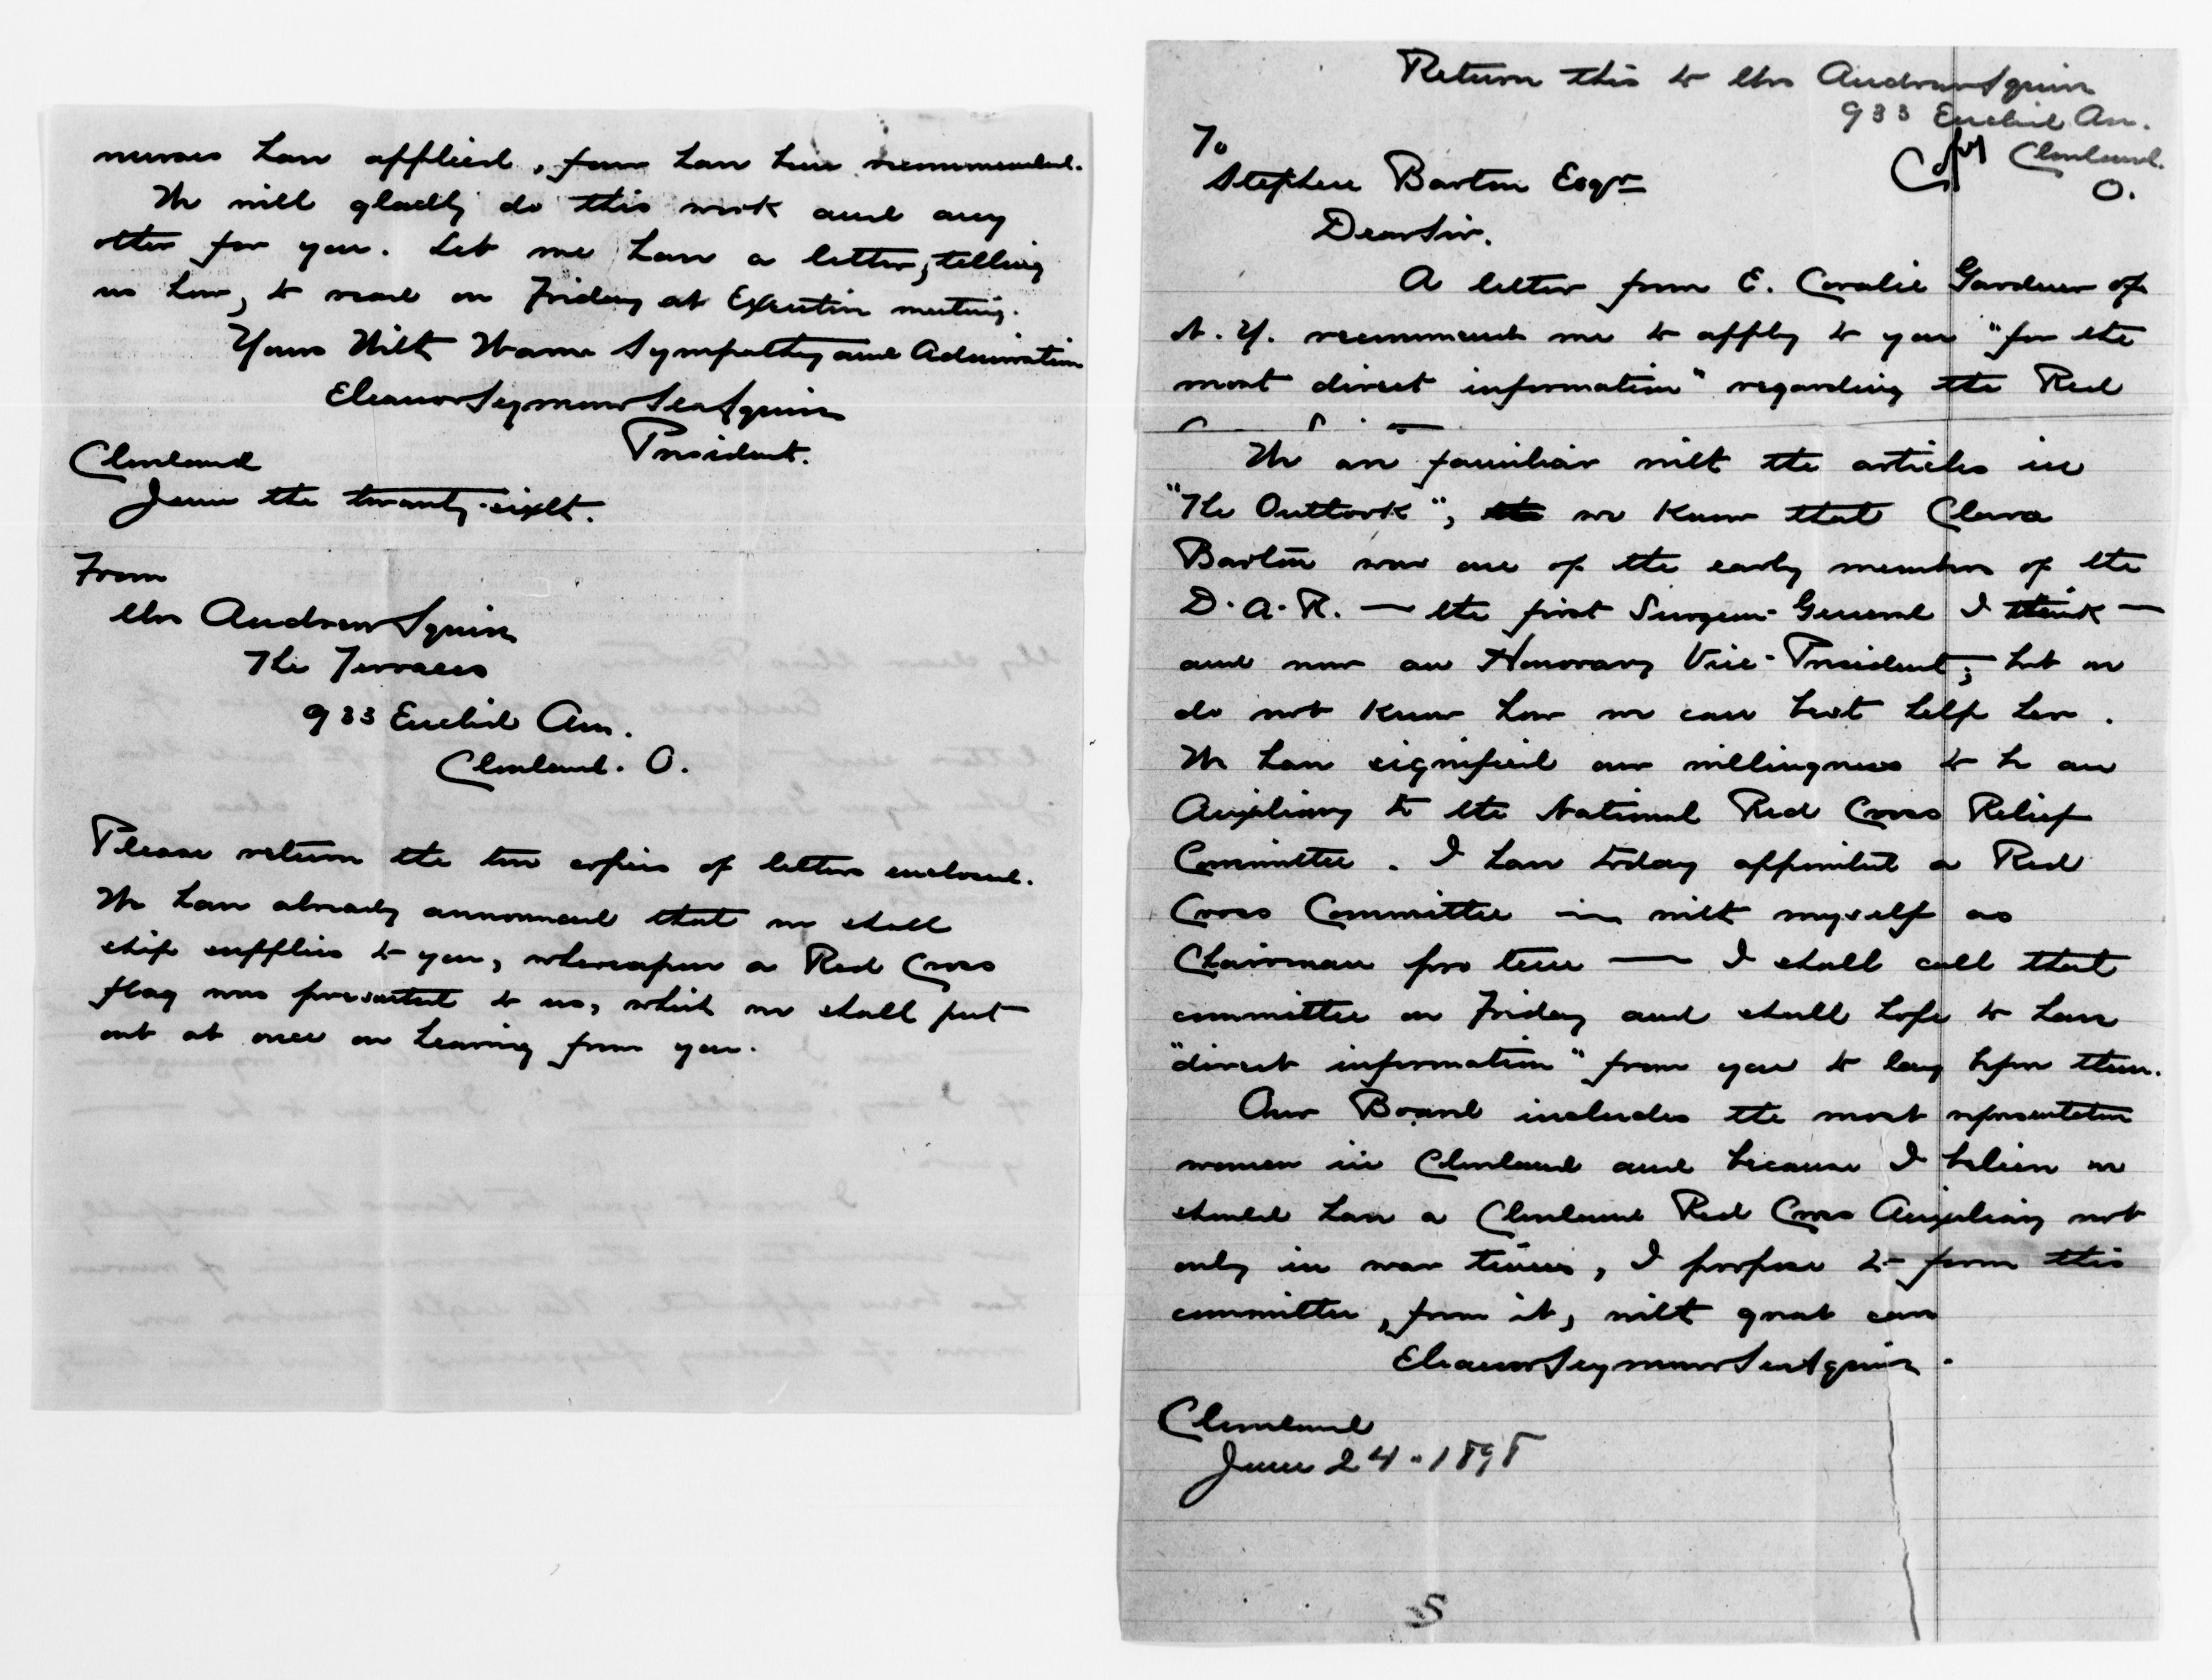 nurses have applied, few have been recommended.
We will gladly do this work and any
other for you. Let me have a letter, telling
us how, to read on Friday at Executive meeting.
Yours With Warm Sympathy and Admiration
Eleanor Seymour Sea Squire
President.
Cleveland
June the twenty-sixth.
From
Mrs Andrew Squire
The Terraces
933 Euclid Ave.
Cleveland. O.
Please return the two copies of letters enclosed.
We have already announced that we shall
ship supplies to you, whereupon a Red Cross
flag was presented to us, which we shall put
out at once on hearing from you.
Return this to Mrs Andrew Squire
933 Euclid Ave.
Cleveland.
O.
Copy
To
Stephen Barton Esqr
Dear Sir.
A letter from E. Coralie Gardner of
N. Y. recommends me to apply to you "for the
most direct information" regarding the Red
We are familiar with the articles in
"The Outlook", we know that Clara
Barton was one of the early members of the
D. A. R. — the first Surgeon-General I think —
and now an Honorary Vice-President; but we
do not know how we can best help her.
We have signified our willingness to be an
Auxiliary to the National Red Cross Relief
Committee. I have today appointed a Red
Cross Committee with myself as
Chairman pro tem — I shall call that
committee on Friday and shall hope to have
"direct information" from you to lay before them.
Our Board includes the most representative
women in Cleveland and because I believe we
should have a Cleveland Red Cross Auxiliary not
only in war times, I propose to form this
committee, form it, with great care
Eleanor Seymour Sea Squire.
Cleveland
June 24. 1898
5